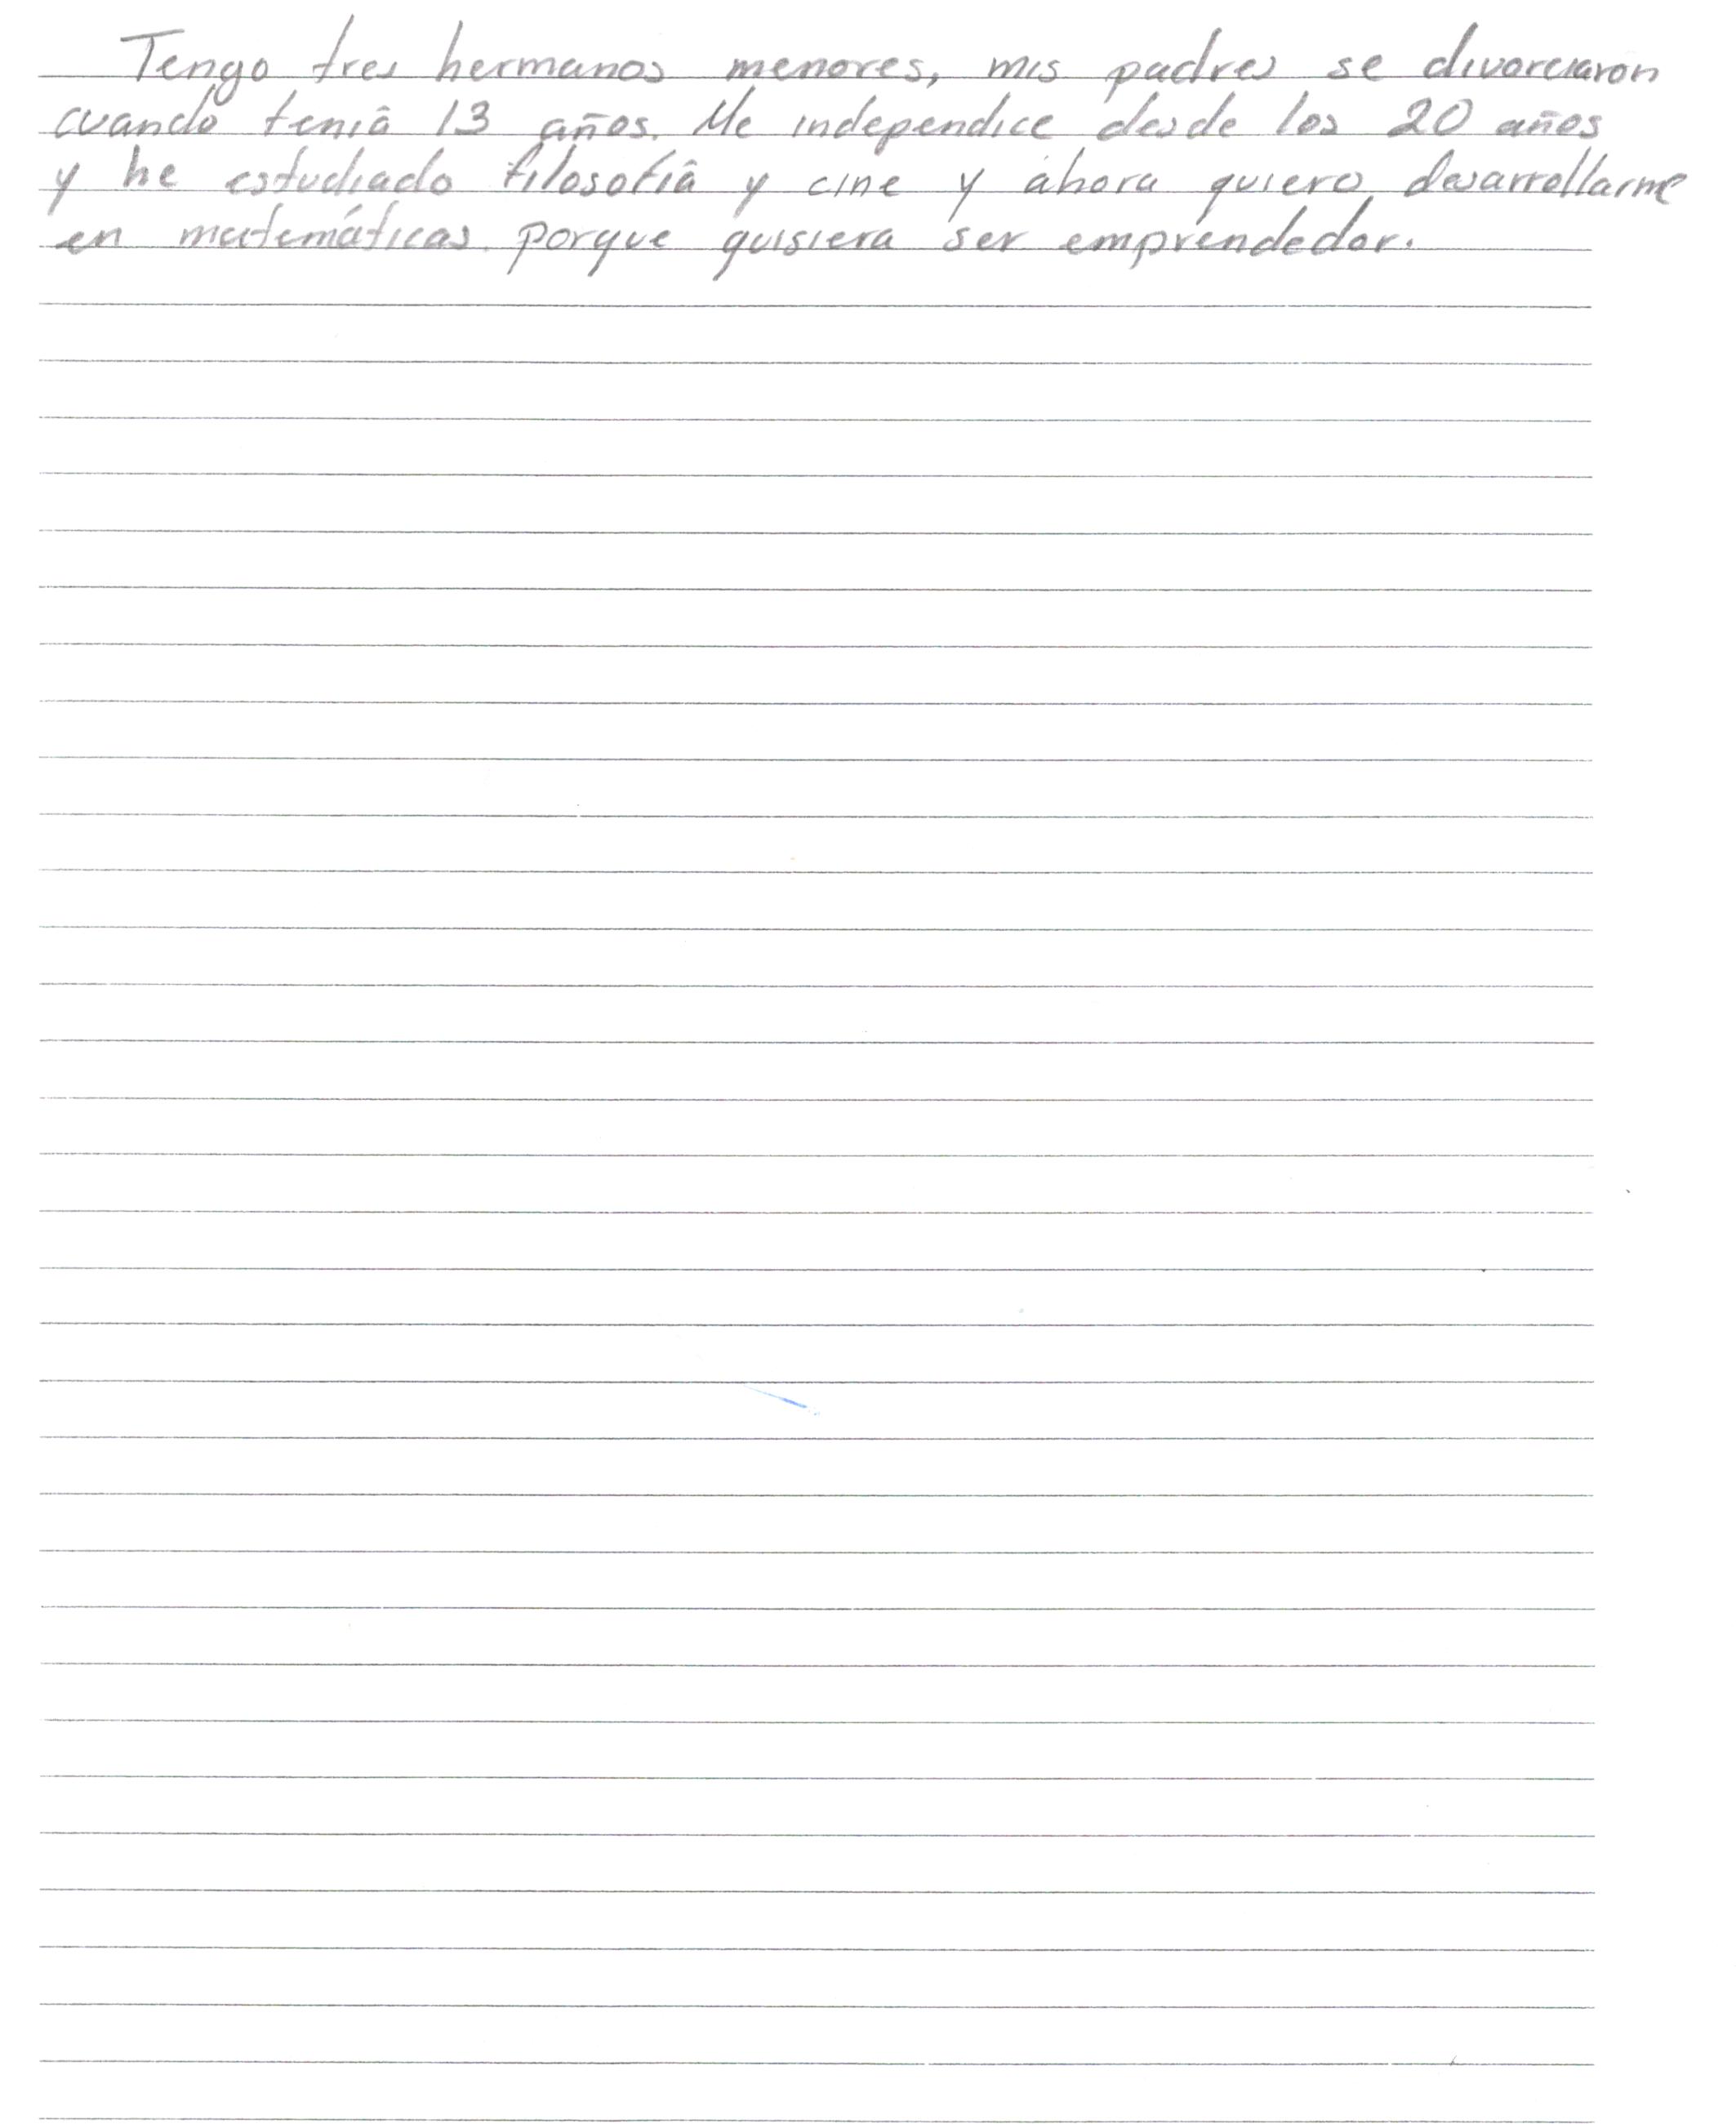 Tengo tres hermanos menores, mis padres se divorciaron
cuando tenía 13 años. Me independice desde los 20 años
y he estudiado filosofía y cine y ahora quiero desarrollarme
en matemáticas porque quisiera ser emprendedor.